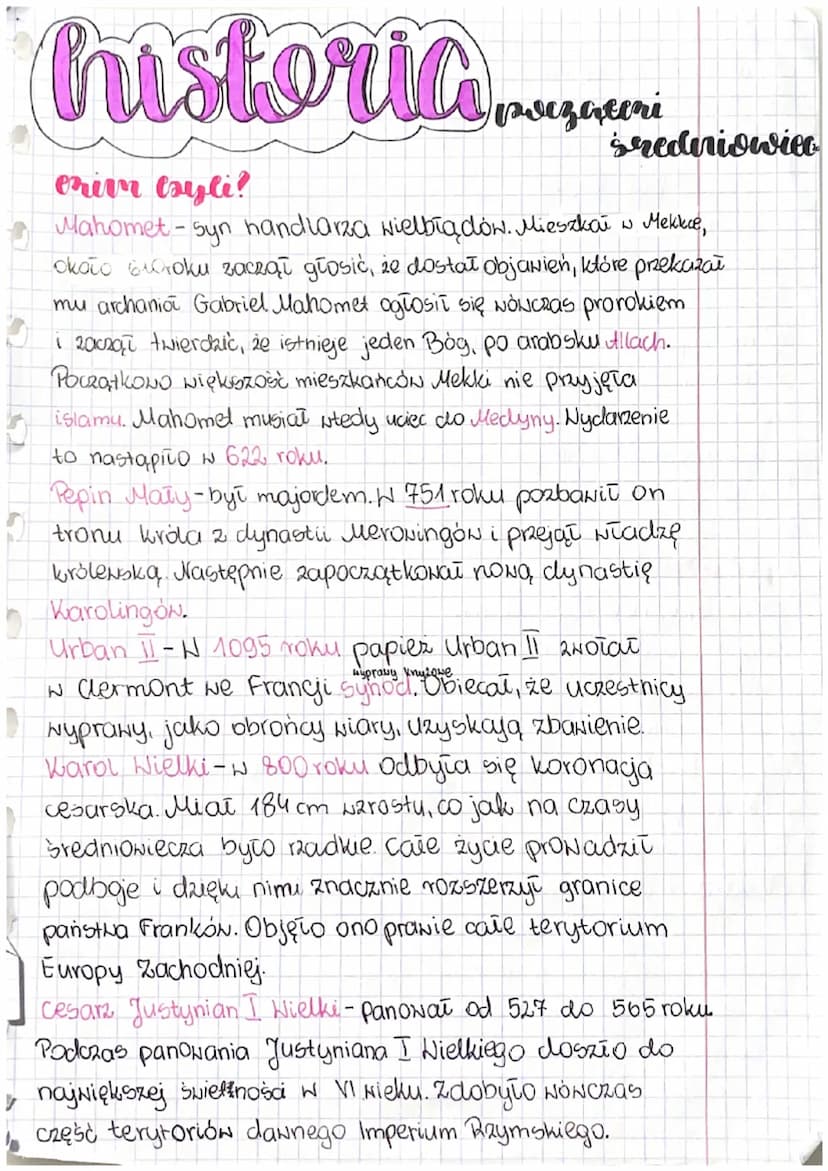 historia
początki
średniowiecza
kim byli?
Mahomet - syn handlarza wielbłądów. Mieszkał w Mekkce,
około roku zaczął głosić, że dostał objawień, które przekazał
mu archanioł Gabriel. Mahomet ogłosił się wówczas prorokiem
i zaczął twierdzić, że istnieje jeden Bóg, po arabsku Allach.
Początkowo większość mieszkańców Mekki nie przyjęła
islamu. Mahomet musiał wtedy uciec do Medyny. Wydarzenie
to nastąpiło w 622 roku.
Pepin Mały - był majordem. W 751 roku pozbawił on
tronu króla z dynastii Merowingów i przejął władzę
królewską. Następnie zapoczątkował nową dynastię
Karolingów.
Urban II - W 1095 roku papież Urban II zwołał
wyprawy krzyżowe
w Clermont we Francji synod. Obiecał, że uczestnicy
wyprawy, jako obrońcy wiary, uzyskają zbawienie.
Karol Wielki - w 800 roku odbyła się koronacja
cesarska. Miał 184 cm wzrostu, co jak na czasy
średniowiecza było rzadkie. Całe życie prowadził
podboje i dzięki nimi znacznie rozszerzył granice
państwa Franków. Objęło ono prawie całe terytorium
Europy Zachodniej.
Cesarz Justynian I Wielki - panował od 527 do 565 roku.
Podczas panowania Justyniana I Wielkiego doszło do
największej świetności w VI wieku. Zdobyło wówczas
część terytoriów dawnego Imperium Rzymskiego.